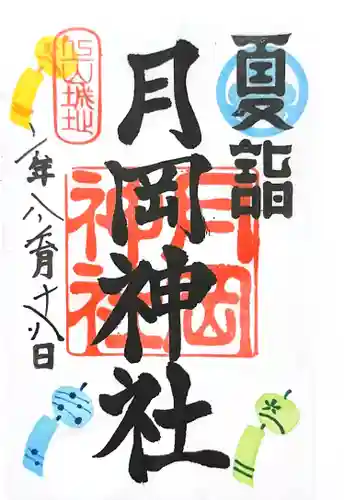 夏詣
月岡神社
月岡
神社
上山城址
年八月十八日